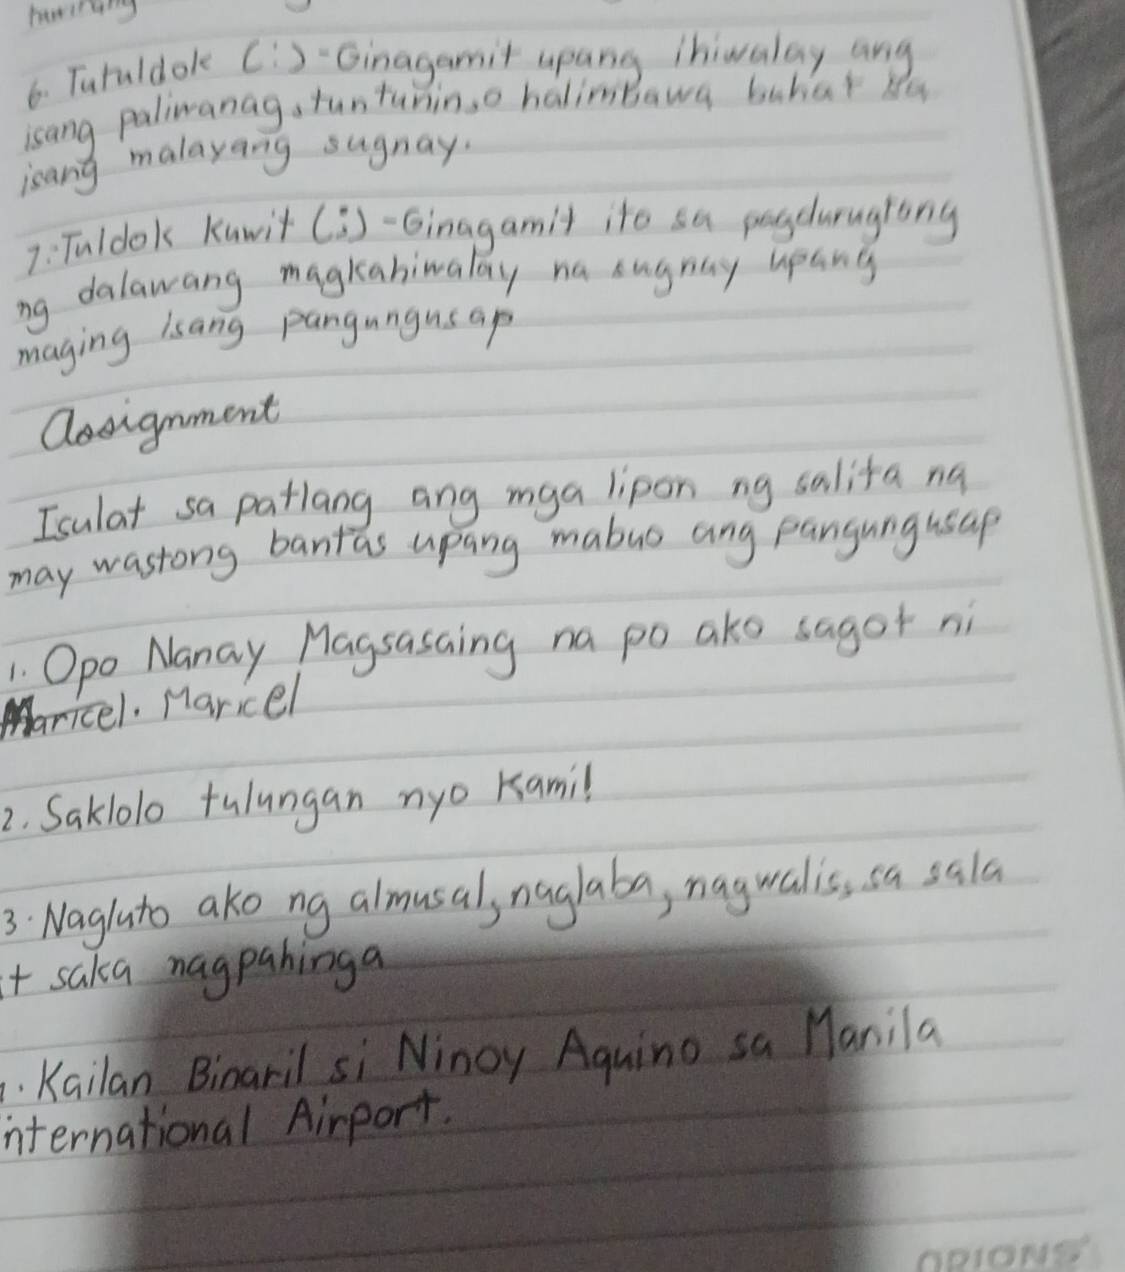 6. Tutuldok (:) - Ginagamit upang ihiwalay ang
isang paliwanag, tuntunin, o halimbawa buhat sa
isang malayang sugnay.
7. Tuldok Kuwit (;) - Ginagamit ito sa pagdurugtong
ng dalawang magkahiwalay na sugnay upang
maging isang pangungusap
Assignment
Isulat sa patlang ang mga lipon ng salita na
may wastong bantas upang mabuo ang pangungusap
1. Opo Nanay Magsasaing na po ako sagot ni
Maricel. Maricel
2. Saklolo tulungan nyo Kami!
3. Nagluto ako ng almusal, naglaba, nagwalis, sa sala
t saka nagpahinga
. Kailan Binaril si Ninoy Aquino sa Manila
nternational Airport.
ORIONS